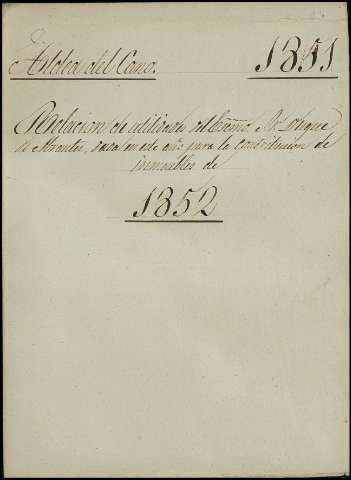 Aldea del Cano. 1851
Relacion de utilidades del Escmo. Sr. Duque
de Abrantes, en este año para la contribucion de
inmuebles de
1852